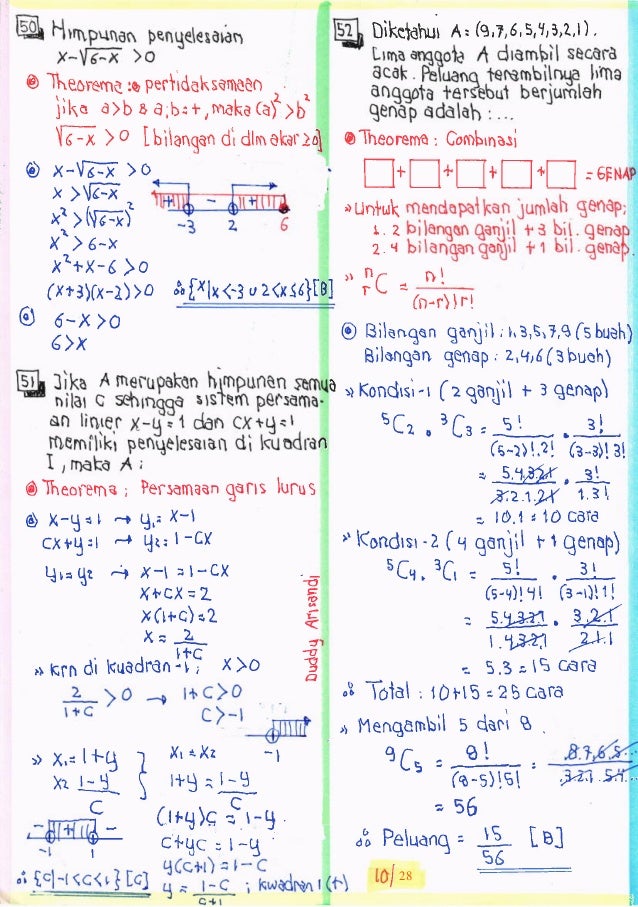 50. Himpunan penyelesaian
x-√6-x >0
Theorema: pertidaksamaan
jika a>b & a;b=+, maka (a)² >b²
√6-x >0 [bilangan di dlm akar ≥0]
x-√6-x >0
x >√6-x
x² >(√6-x)²
x² >6-x
x²+x-6 >0
(x+3)(x-2)>0 ∴{x|x<-3 ∪ 2<x≤6}[B]
+ - +
-3 2 6
6-x>0
6>x
51. Jika A merupakan himpunan semua
nilai c sehingga sistem persama-
an linier x-y=1 dan cx+y=1
memiliki penyelesaian di kuadran
I, maka A:
Theorema: Persamaan garis lurus
x-y=1 → y₁= x-1
cx+y=1 → y₂=1-cx
y₁=y₂ → x-1 =1-cx
x+cx=2
x(1+c)=2
x= 2
1+c
» krn di kuadran-1; x>0
2/1+c >0 → 1+c>0
c>-1
-1
» x₁=1+y } x₁=x₂
x₂ 1-y/c } 1+y = 1-y/c
(1+y)c = 1-y
c+yc = 1-y
y(c+1) =1-c
y = 1-c/c+1 ; kwadran 1 (+)
- + -
-1 1
∴ {c|-1<c<1} [C]
Duddy Arisandi
52. Diketahui A=(9,7,6,5,4,3,2,1).
Lima anggota A diambil secara
acak. Peluang terambilnya lima
anggota tersebut berjumlah
genap adalah:...
Theorema: Combinasi
□+□+□+□+□ =GENAP
» Untuk mendapatkan jumlah genap;
1. 2 bilangan ganjil +3 bil. genap
2. 4 bilangan ganjil +1 bil. genap.
» ⁿᵣC = n!/(n-r)!r!
Bilangan ganjil: 1,3,5,7,9 (5 buah)
Bilangan genap: 2,4,6 (3 buah)
» Kondisi-1 (2 ganjil + 3 genap)
⁵C₂ . ³C₃ = 5!/(5-2)!.2! . 3!/(3-3)!3!
= 5.4.3.2.1/3.2.1.2.1 . 3!/1.3!
= 10.1 =10 cara
» Kondisi-2 (4 ganjil +1 genap)
⁵C₄. ³C₁ = 5!/(5-4)!4! . 3!/(3-1)!1!
= 5.4.3.2.1/1.4.3.2.1 . 3.2.1/2.1.1
= 5.3 =15 cara
∴ Total: 10+15 =25 cara
» Mengambil 5 dari 8.
⁹C₅ = 8!/(8-5)!5! = 8.7.6.5.../3.2.1 5.4...
= 56
∴ Peluang = 15/56 [B]
10/28